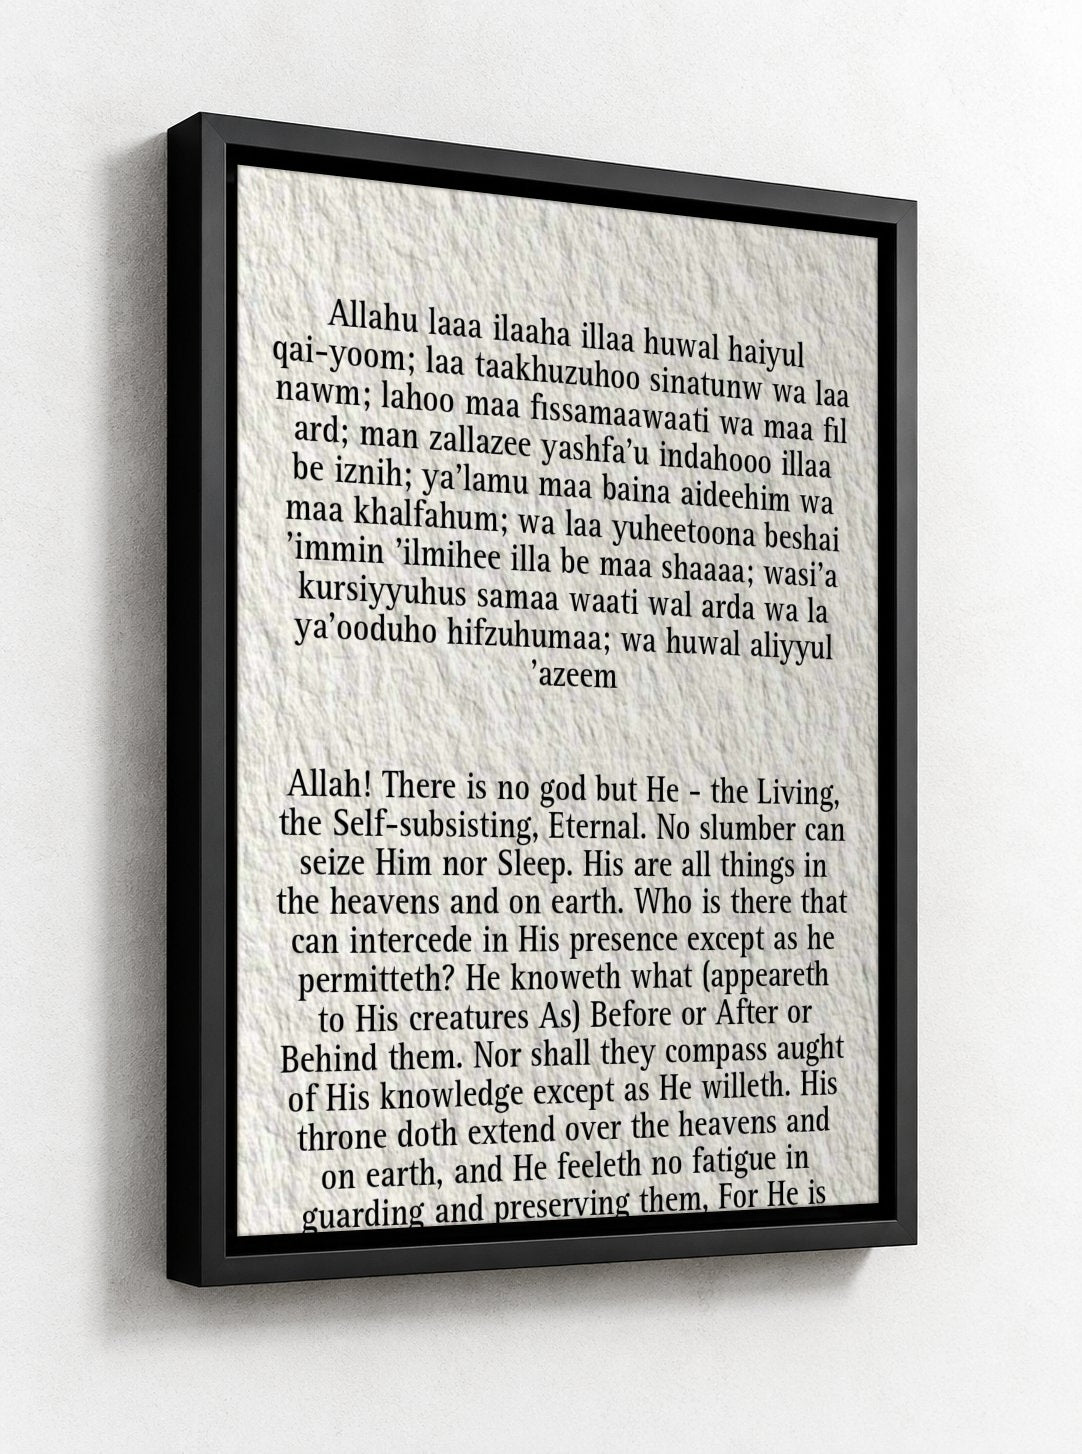 Allahu laaa ilaaha illaa huwal haiyul
qai-yoom; laa taakhuzuhoo sinatunw wa laa
nawm; lahoo maa fissamaawaati wa maa fil
ard; man zallazee yashfa’u indahooo illaa
be iznih; ya’lamu maa baina aideehim wa
maa khalfahum; wa laa yuheetoona beshai
’immin ’ilmihee illa be maa shaaaa; wasi’a
kursiyyuhus samaa waati wal arda wa la
ya’ooduho hifzuhumaa; wa huwal aliyyul
’azeem
Allah! There is no god but He - the Living,
the Self-subsisting, Eternal. No slumber can
seize Him nor Sleep. His are all things in
the heavens and on earth. Who is there that
can intercede in His presence except as he
permitteth? He knoweth what (appeareth
to His creatures As) Before or After or
Behind them. Nor shall they compass aught
of His knowledge except as He willeth. His
throne doth extend over the heavens and
on earth, and He feeleth no fatigue in
guarding and preserving them, For He is